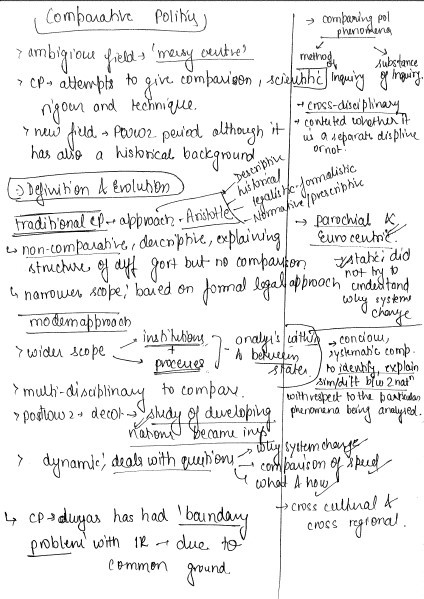 Comparative Politics
> ambigious field → 'messy centre'
> CP → attempts to give comparison, scientific
rigour and technique.
> new field → POWW2 period although it
has also a historical background
:) Definition & Evolution
traditional CP → approach → Aristotle
Descriptive
historical
legalistic-formalistic
Normative/prescriptive
↳ non-comparative, descriptive, explaining
structure of diff govt but no comparison
↳ narrower scope; based on formal legal approach
modern approach
> wider scope
institutions
+
processes
analysis within
& between
states.
> multi-disciplinary to compare.
> postWW2 → decol → study of developing
nations became imp
> dynamic; deals with questions
why system change
comparison of speed
what & how
↳ CP → always has had 'boundary
problem' with IR → due to
common ground.
→ comparing pol
phenomena
method of Inquiry
substance
of Inquiry.
→ cross-disciplinary
→ contested whether it
is a separate displine
or not!
→ parochial &
Eurocentric.
static; did
not try to
understand
why systems
change
→ concious,
systematic comp.
to identify, explain
sim/diff b/w 2 natn
with respect to the particular
phenomena being analysed.
→ cross cultural &
cross regional.